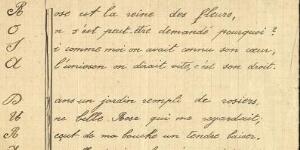 Rose est la reine des fleurs,
On s'est peut-être demandé pourquoi?
Si comme moi on avait connu son cœur,
A l'unisson on dirait vite, c'est son droit.
Dans un jardin rempli de rosiers,
Une belle Rose qui me regardait;
Reçut de ma bouche un tendre baiser.